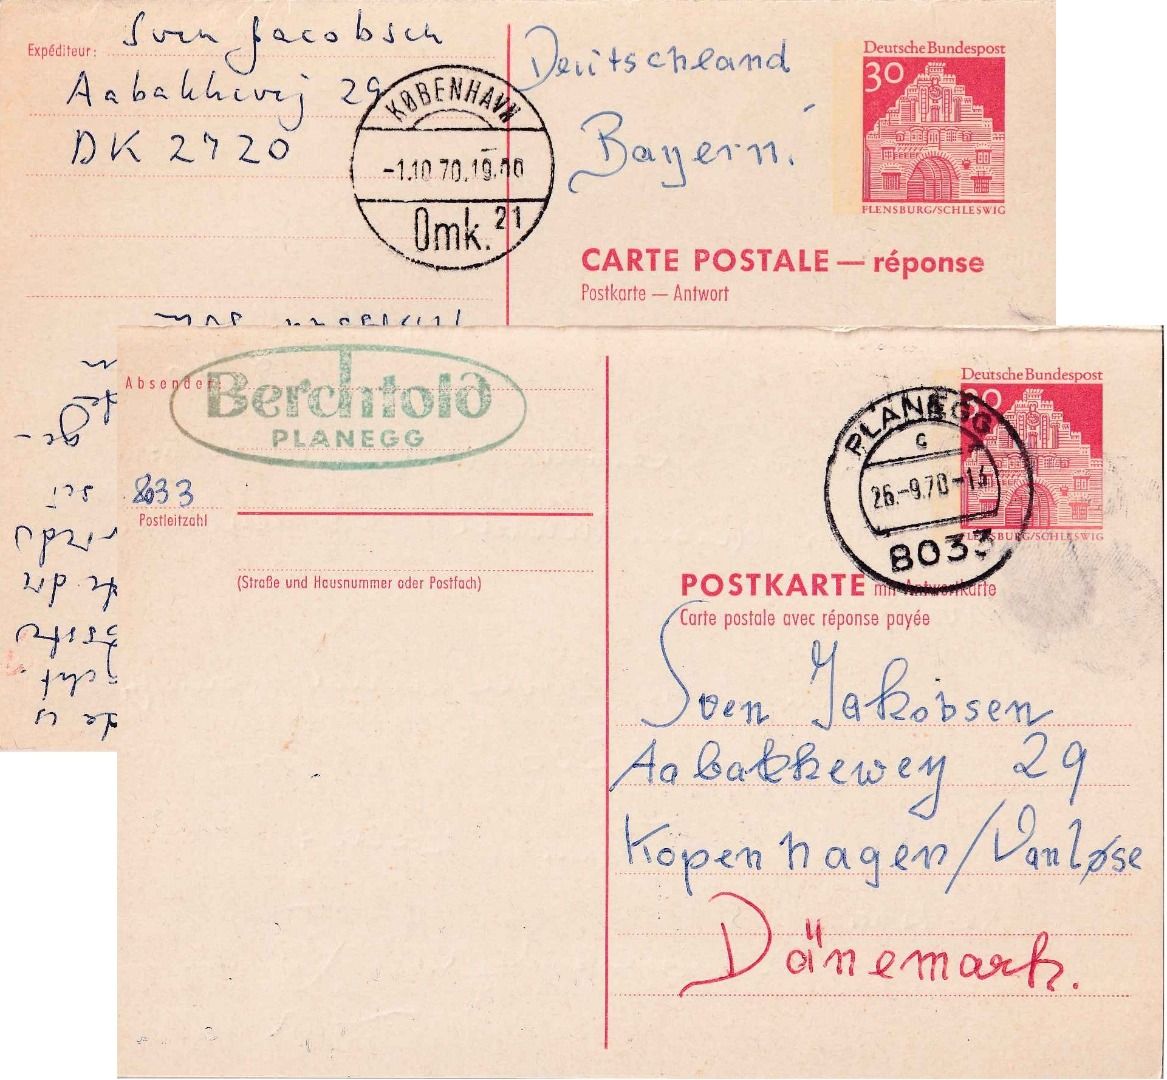 Expéditeur: Sven Jacobsen
Aabakkevej 29
DK 2720
KØBENHAVN
-1.10.70.19.00
Omk. 21
Deutschland
Bayern.
Deutsche Bundespost
30
FLENSBURG/SCHLESWIG
CARTE POSTALE — réponse
Postkarte — Antwort
Absender:
Berchtold
PLANEGG
8033
Postleitzahl
(Straße und Hausnummer oder Postfach)
Deutsche Bundespost
30
FLENSBURG/SCHLESWIG
PLANEGG
c
26.-9.70-
8033
POSTKARTE mit Antwortkarte
Carte postale avec réponse payée
Sven Jakobsen
Aabakkewey 29
Kopenhagen/Vanløse
Dänemark.